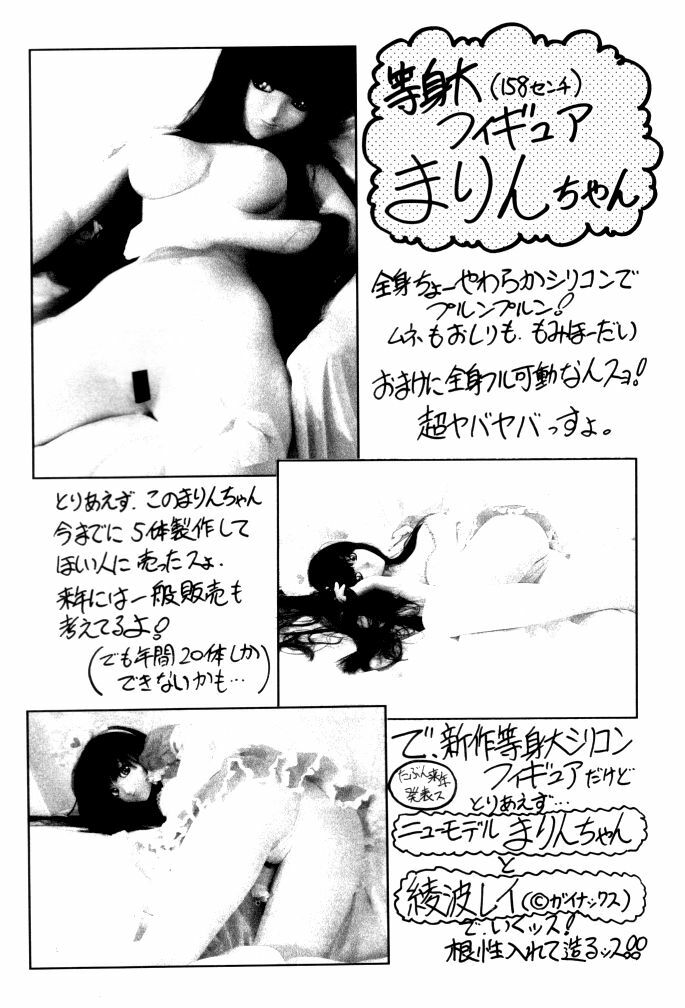 等身大(158センチ)
フィギュア
まりんちゃん
全身ちょーやわらかシリコンで
プルンプルン!
ムネもおしりも、もみほーだい
おまけに全身フル可動なんスョ!
超ヤバヤバっすょ。
とりあえず、このまりんちゃん
今までに5体製作して
ほしい人に売ったスょ。
来年には一般販売も
考えてるよ!
(でも年間20体しか
できないかも…)
で、新作等身大シリコン
フィギュアだけど
たぶん来年
発表ス
とりあえず…
ニューモデル まりんちゃん
と
綾波レイ(©ガイナックス)
で、いくッス!
根性入れて造るッス!!